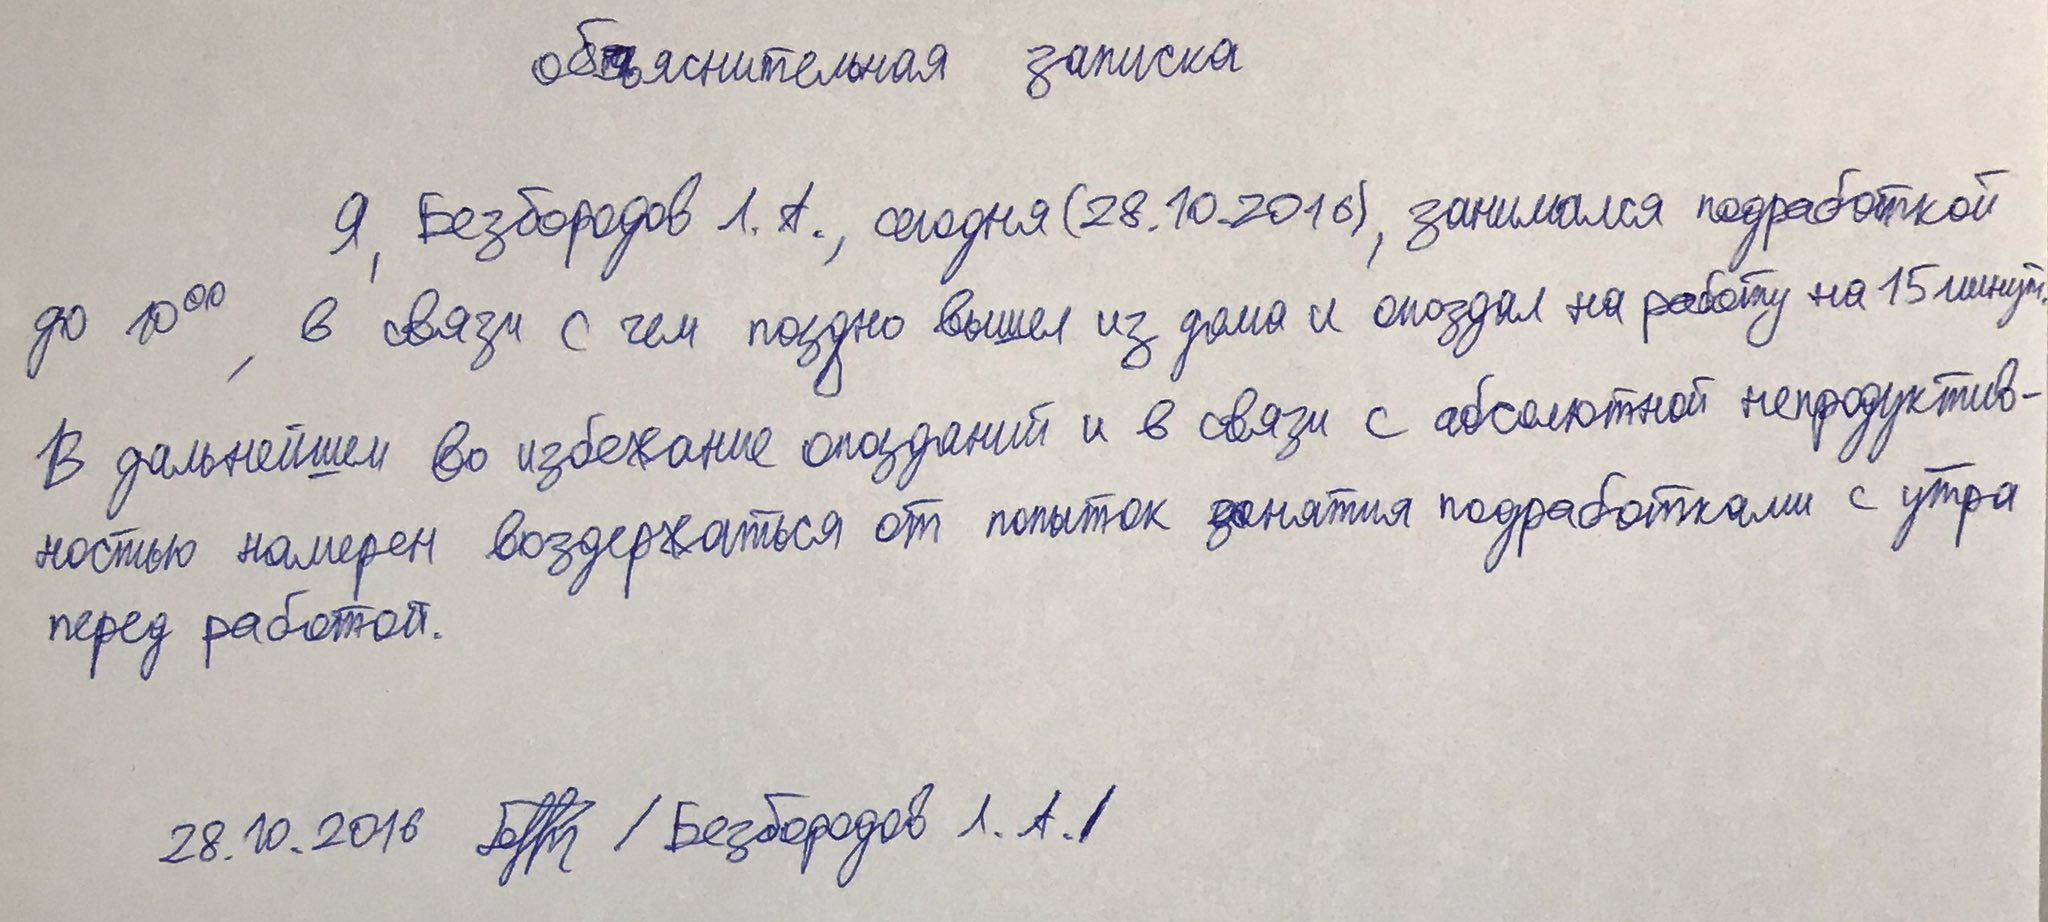 объяснительная записка
Я, Безбородов Л. А., сегодня (28.10.2016), занимался подработкой
до 10⁰⁰, в связи с чем поздно вышел из дома и опоздал на работу на 15 минут.
В дальнейшем во избежание опозданий и в связи с абсолютной непродуктив-
ностью намерен воздержаться от попыток занятия подработками с утра
перед работой.
28.10.2016 / Безбородов Л. А./